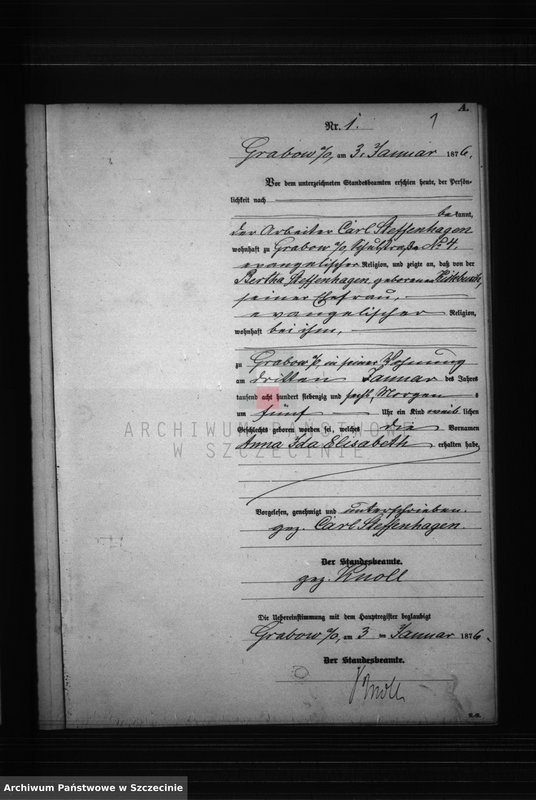 A.
Nr. 1.
1
Grabow a/O, am 3. Januar 1876.
Vor dem unterzeichneten Standesbeamten erschien heute, der Persön-
lichkeit nach
bekannt,
der Arbeiter Carl Steffenhagen
wohnhaft zu Grabow a/O, Schulstraße No 4
evangelischer Religion, und zeigte an, daß von der
Bertha Steffenhagen geborenen
seiner Ehefrau,
evangelischer Religion,
wohnhaft bei ihm,
zu Grabow a/O, in seiner Wohnung
am dritten Januar des Jahres
tausend acht hundert siebenzig und sechs, Morgens
um fünf Uhr ein Kind weiblichen
Geschlechts geboren worden sei, welches die Vornamen
Anna Ida Elisabeth erhalten habe
ARCHIWUM PAŃSTWOWE
W SZCZECINIE
Vorgelesen, genehmigt und unterschrieben.
gez. Carl Steffenhagen.
Der Standesbeamte.
gez. Knoll
Die Uebereinstimmung mit dem Hauptregister beglaubigt
Grabow a/O, am 3 ten Januar 1876.
Der Standesbeamte.
Knoll
Archiwum Państwowe w Szczecinie